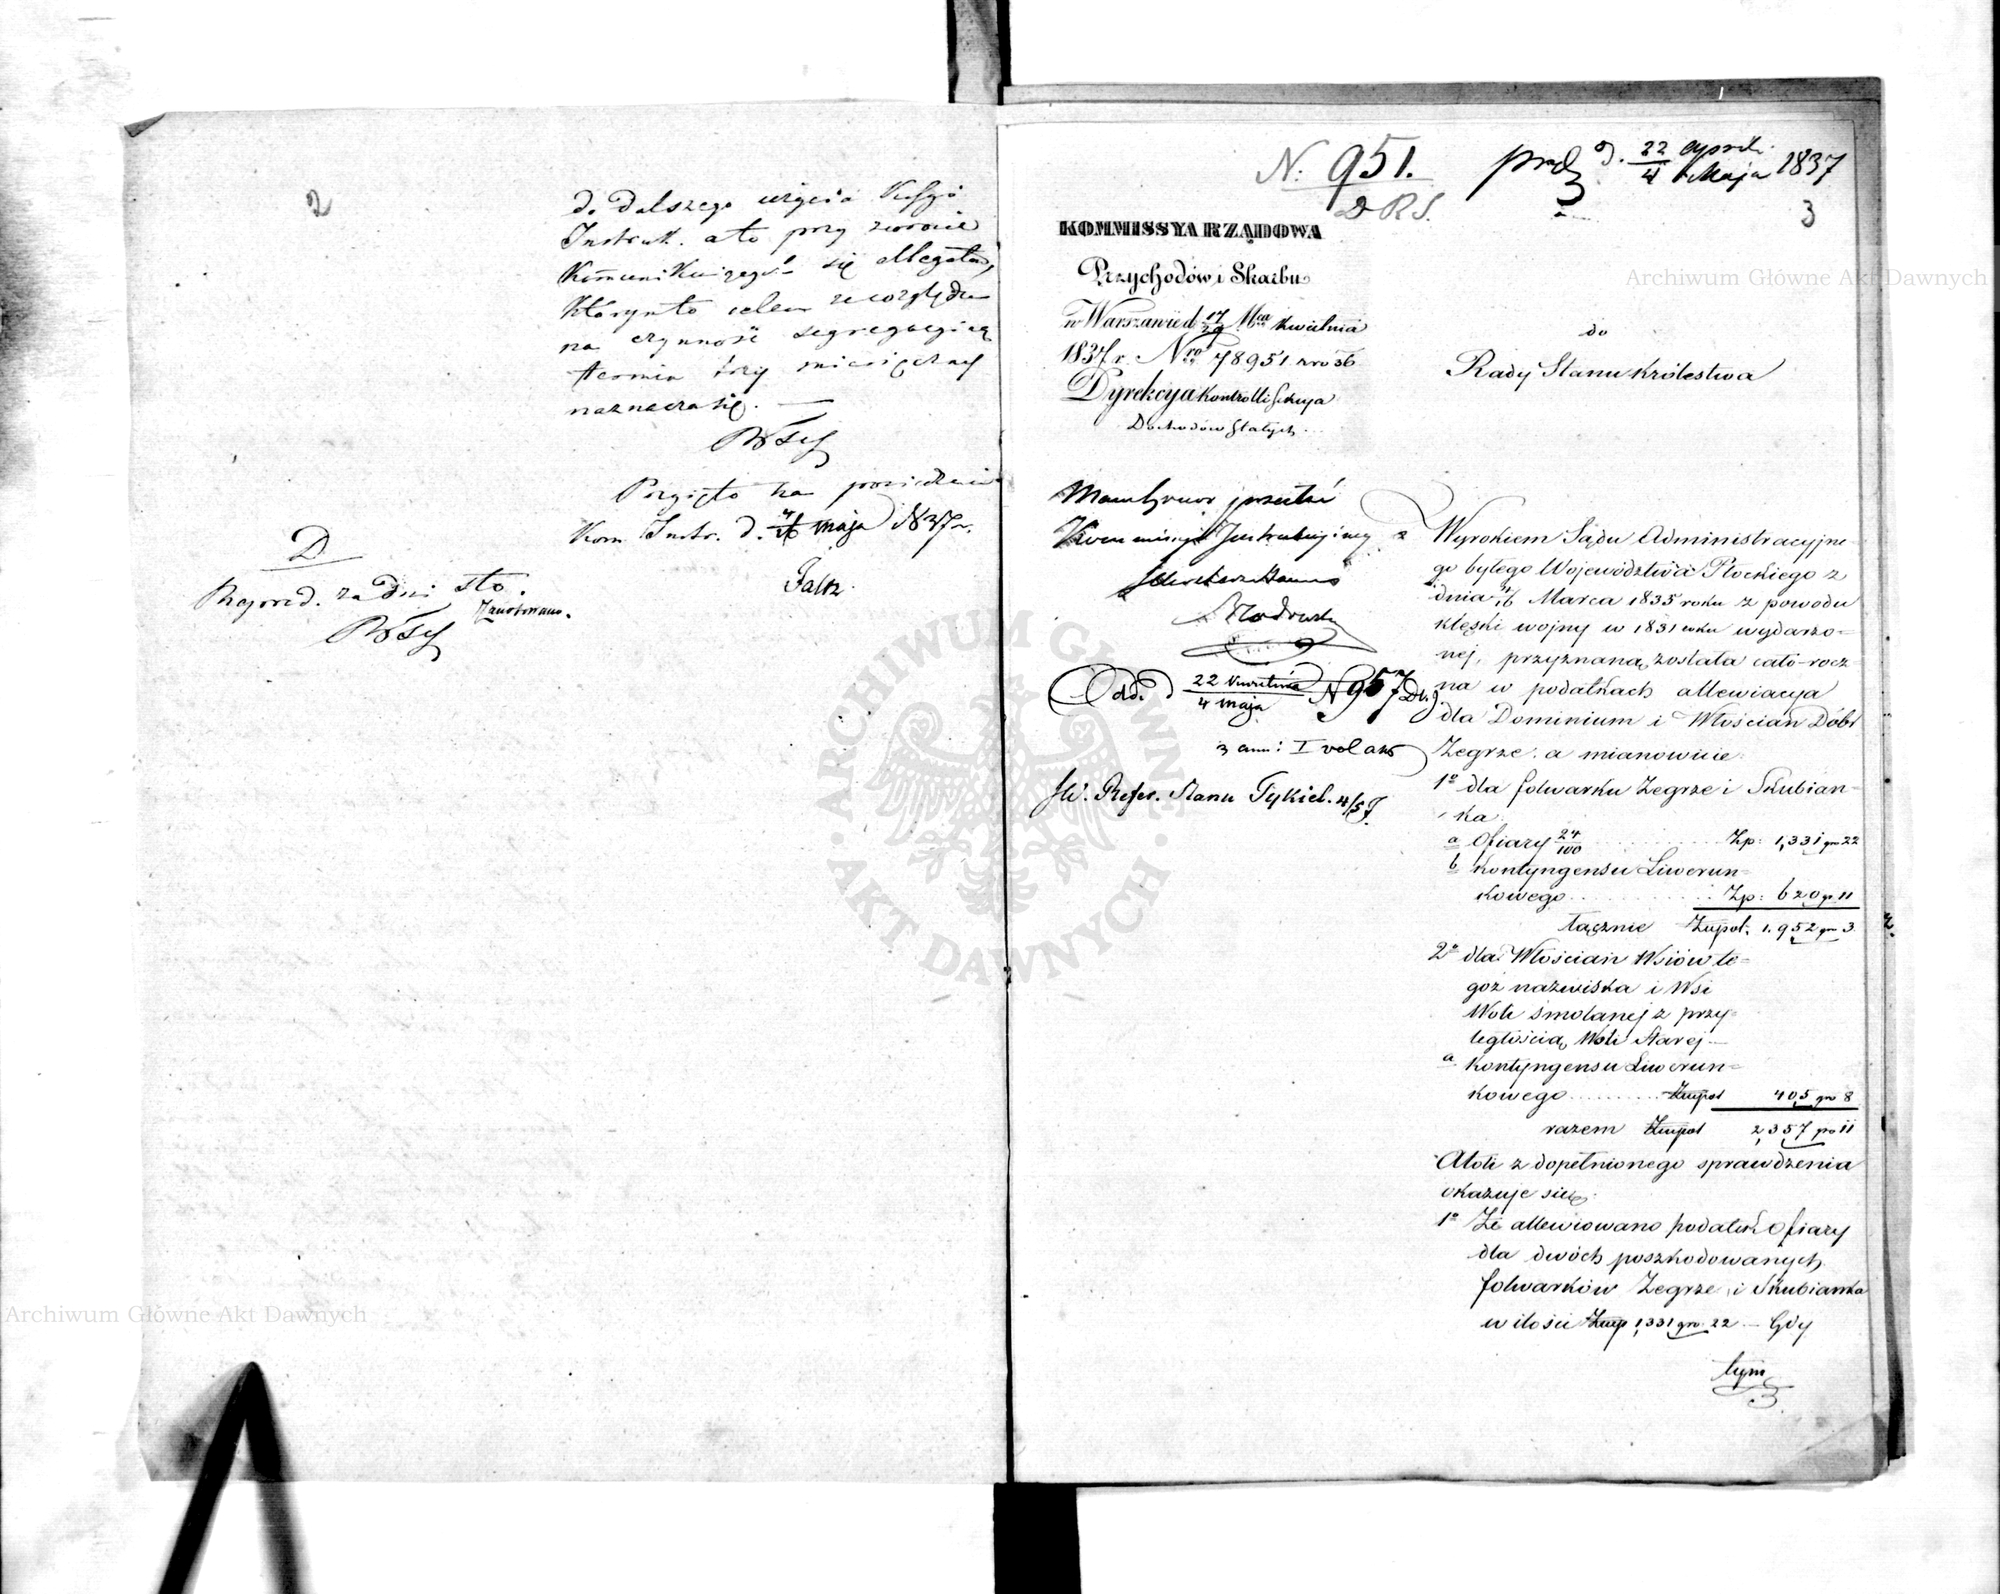 2
do Dalszego użycia
Instruk. a to przy zwrocie
się allegatów,
Którym to celem ze względu
na czynność segregacyjną
termin trzy miesięczny
naznacza się. —
Przyjęto na posiedzeniu
Kom Instr. d. 4/16 maja 1837 r.
Faltz.
D
Repord. za Dni sto.
Zanotowano.
N: 951.
D R S.
prez d. 22 Apryl. / 4 Maja 1837
3
KOMMISSYA RZĄDOWA
Przychodów i Skarbu
w Warszawie d 17/29 Mca Kwietnia
1837 r. Nro 78951 zro 36
Dyrekcya Kontrolli Sekcya
Dochodów Stałych.
do
Rady Stanu Królestwa
Kommissyi Instrukcyjney
Odd. d 22 Kwietnia / 4 maja N 957
z ann: I vol
JW. Refer. Stanu Tykiel. 4/5
Wyrokiem Sądu Administracyjne-
go byłego Województwa Płockiego z
dnia 4/16 Marca 1835 roku z powodu
klęski wojny w 1831 roku wydarzo=
nej, przyznaną została cało-rocz=
na w podatkach allewiacya
dla Dominium i Włościan Dóbr
Zegrze. a mianowicie:
1º dla folwarku Zegrze i Skubian-
ka.
a Ofiary 24/100 . . . . . Zp: 1,331 gr 22
b Kontyngensu Liwerun=
kowego . . . . . Zp: 620 gr 11
łącznie Złpol: 1.952 gr 3
2º dla Włościan Wsiów te=
goż nazwiska i Wsi
Woli Smolanej z przy=
ległością Woli Starej —
a Kontyngensu Liwerun=
kowego . . . . . Złpol 405 gr 8
razem Złpol 2,357 gr 11
Atoli z dopełnionego sprawdzenia
okazuje się:
1º Że allewiowano podatek Ofiary
dla dwóch poszkodowanych
folwarków Zegrze i Skubianka
w ilości Złp 1,331 gr. 22 — Gdy
tym
Archiwum Główne Akt Dawnych
Archiwum Główne Akt Dawnych
ARCHIWUM GŁÓWNE · AKT DAWNYCH ·